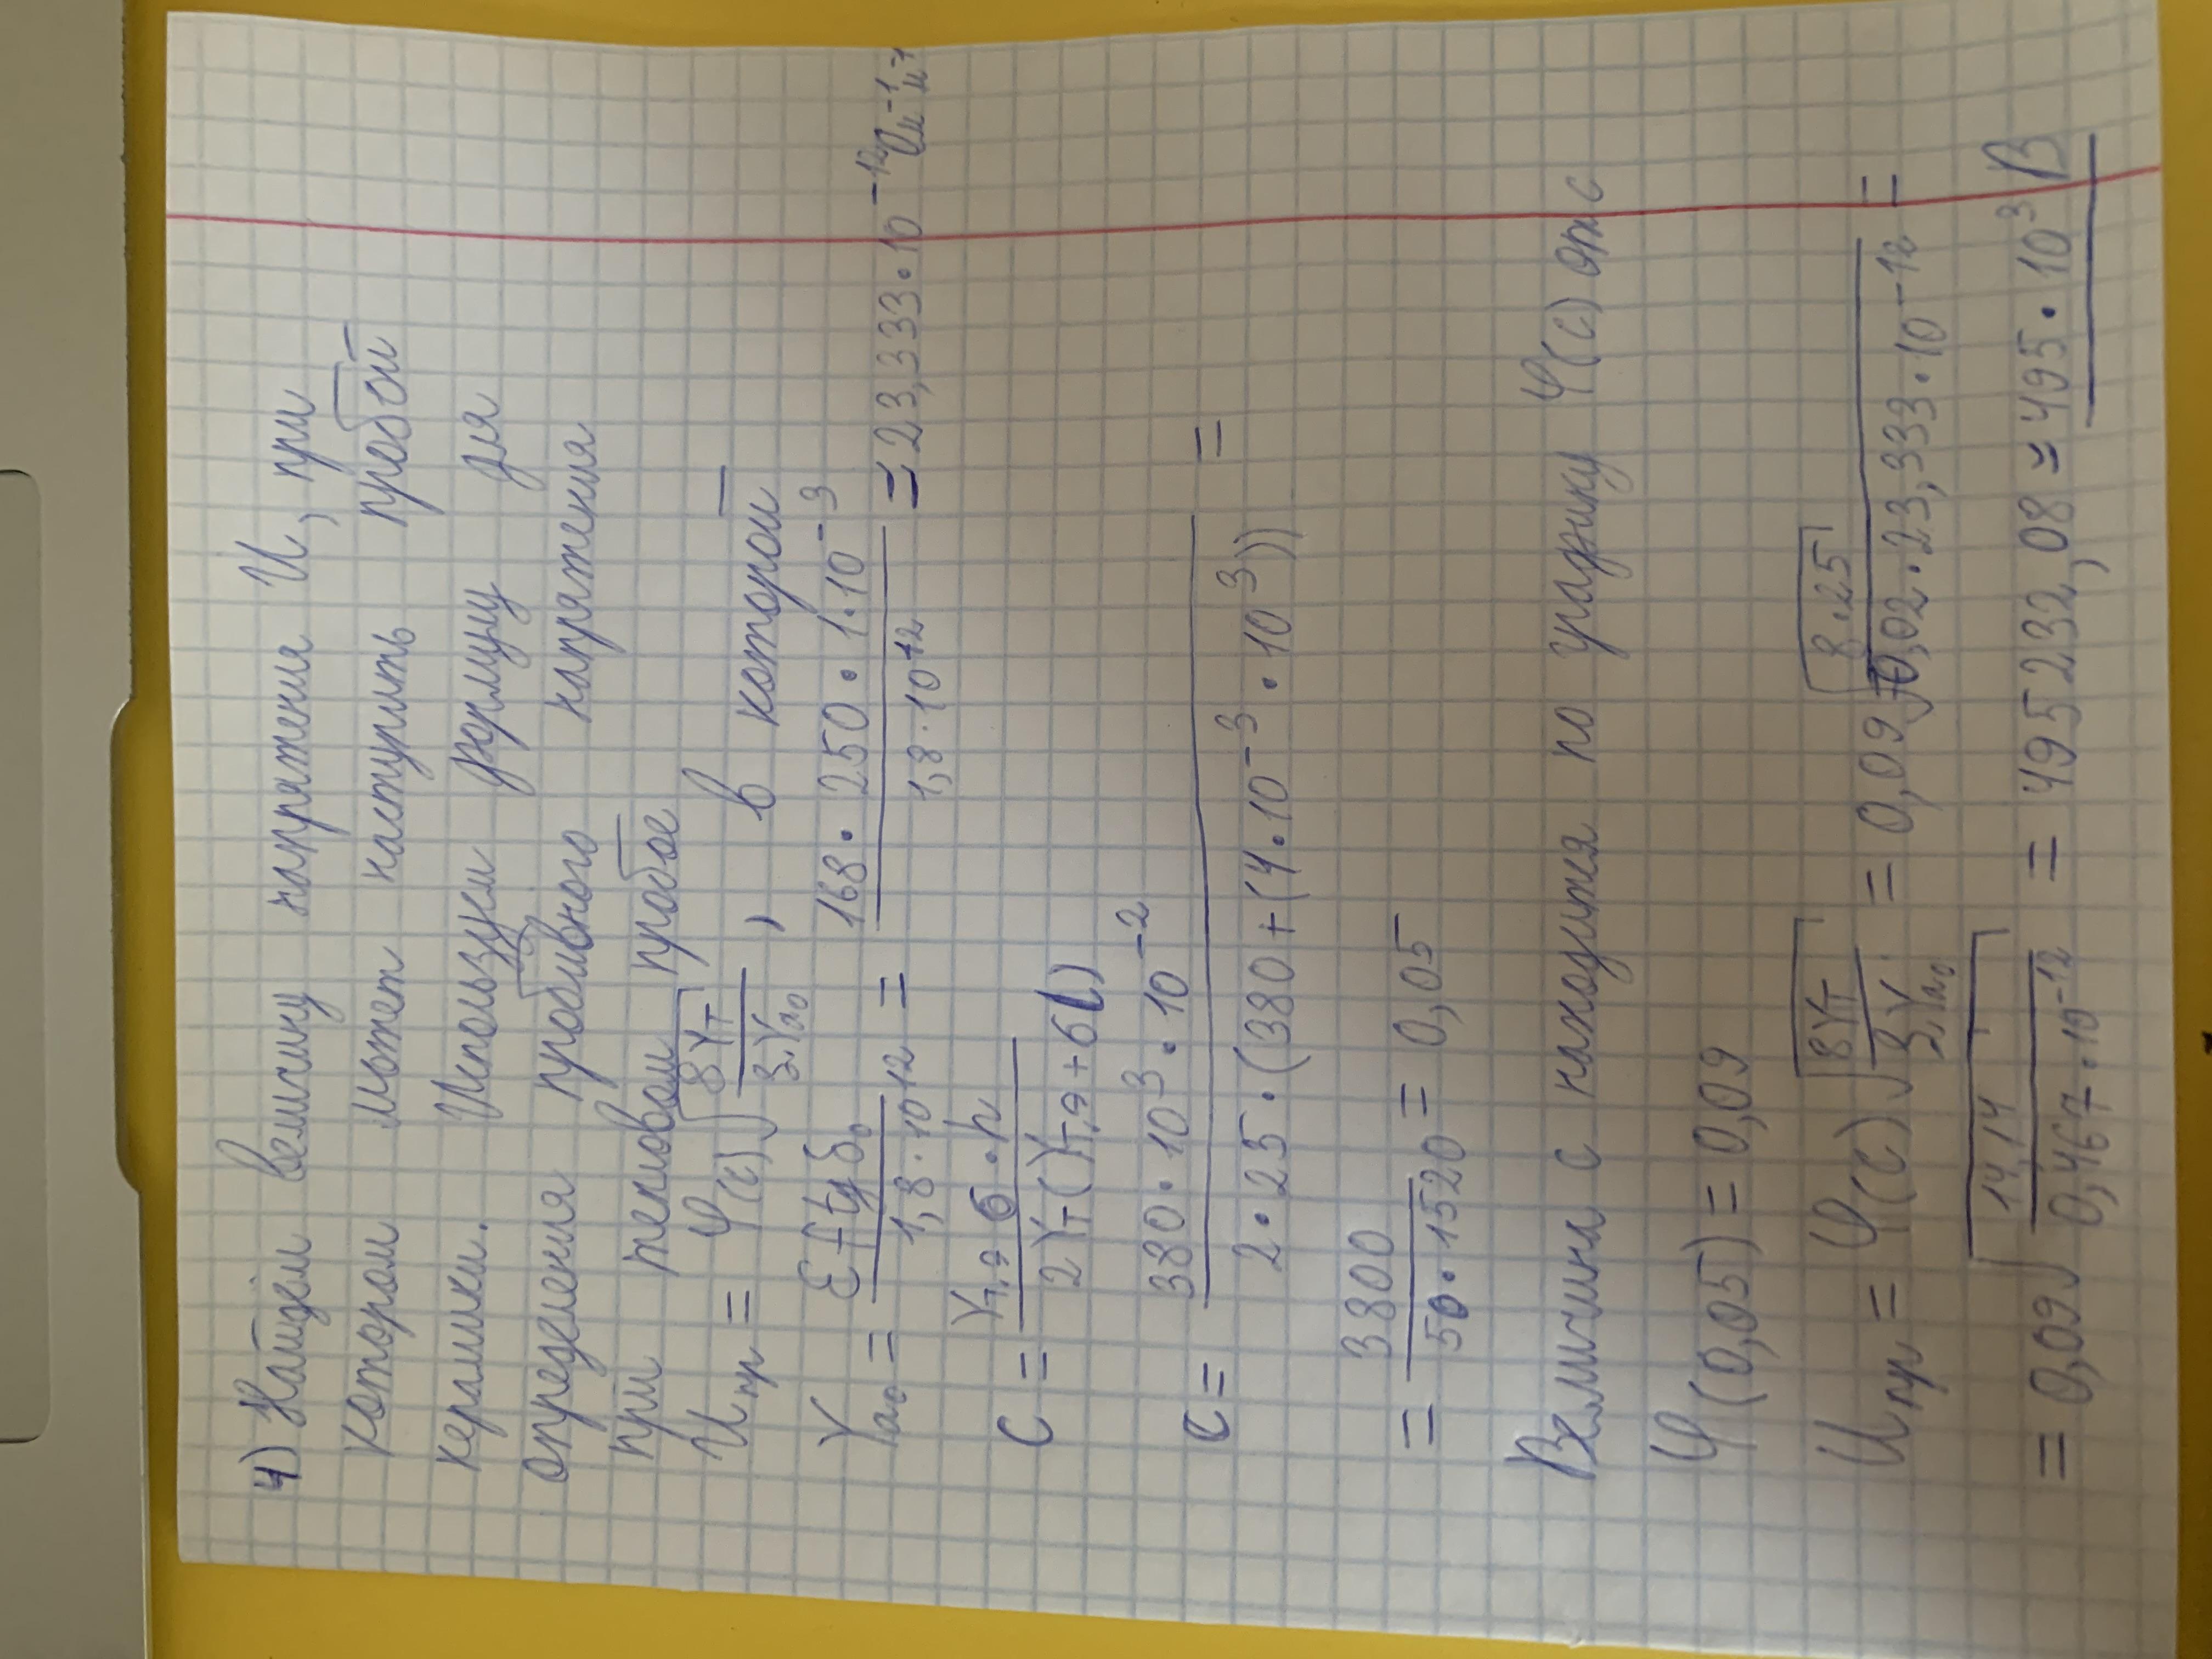 4) Найдём величину напряжения U, при
котором может наступить пробой
керамики. Используем формулу для
определения пробивного напряжения
при тепловом пробое
Uпр = φ(c)√(8γт / βγa₀), в которой
γa₀ = εf tgδ₀ / 1,8·10¹² = 168·250·1·10⁻³ / 1,8·10⁺¹² = 23,333·10⁻¹² Ом⁻¹м⁻¹
c = γт.э σ·h / 2γт(γт.э + σl)
c = 380·10³·10⁻² / 2·25·(380+(4·10⁻³·10³)) =
= 3800 / 50·1520 = 0,05
Величина c находится по графику φ(c) от c
φ(0,05) = 0,09
Uпр = φ(c)√(8γт / βγa₀) = 0,09√(8·25 / 0,02·23,333·10⁻¹²) =
= 0,09√(14,14 / 0,467·10⁻¹²) = 495232,08 ≈ 495·10³ В